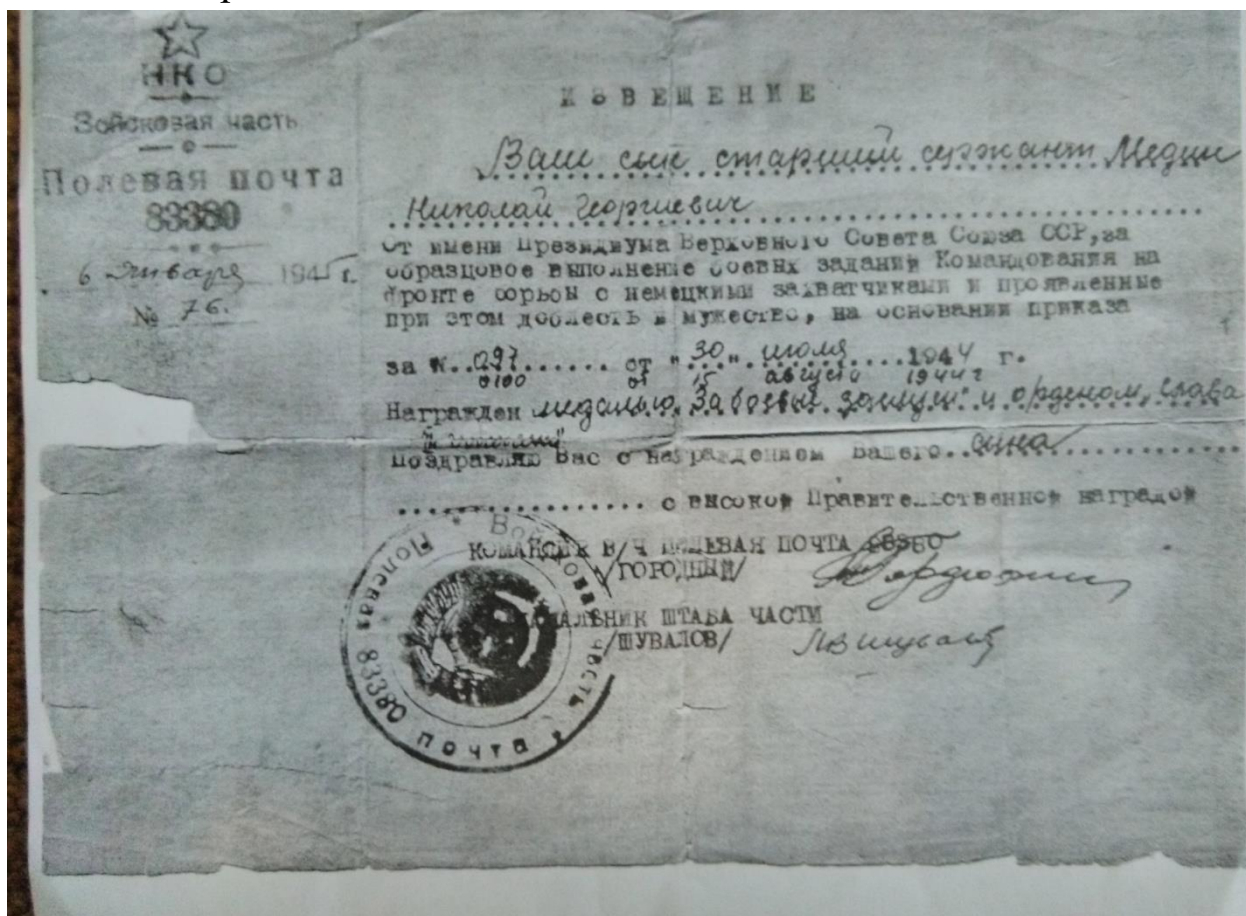 НКО
Войсковая часть
Полевая почта
83380
6 Января 1945 г.
№ 76.
ИЗВЕЩЕНИЕ
Ваш сын старший сержант Медын
Николай Георгиевич
От имени Президиума Верховного Совета Союза ССР, за
образцовое выполнение боевых заданий Командования на
фронте борьбы с немецкими захватчиками и проявленные
при этом доблесть и мужество, на основании приказа
за №..097...... от "30" июля....1944 г.
0100 от 15 августа 1944 г
Награжден медалью "За боевые заслуги" и орденом "Слава
III степени"
Поздравляю Вас с награждением Вашего..сына.............
................ с высокой Правительственной наградой
КОМАНДИР В/Ч ПОЛЕВАЯ ПОЧТА
/ГОРОДНЫЙ/
НАЧАЛЬНИК ШТАБА ЧАСТИ
/ШУВАЛОВ/
Войсковая часть * Полевая 83380 почта *